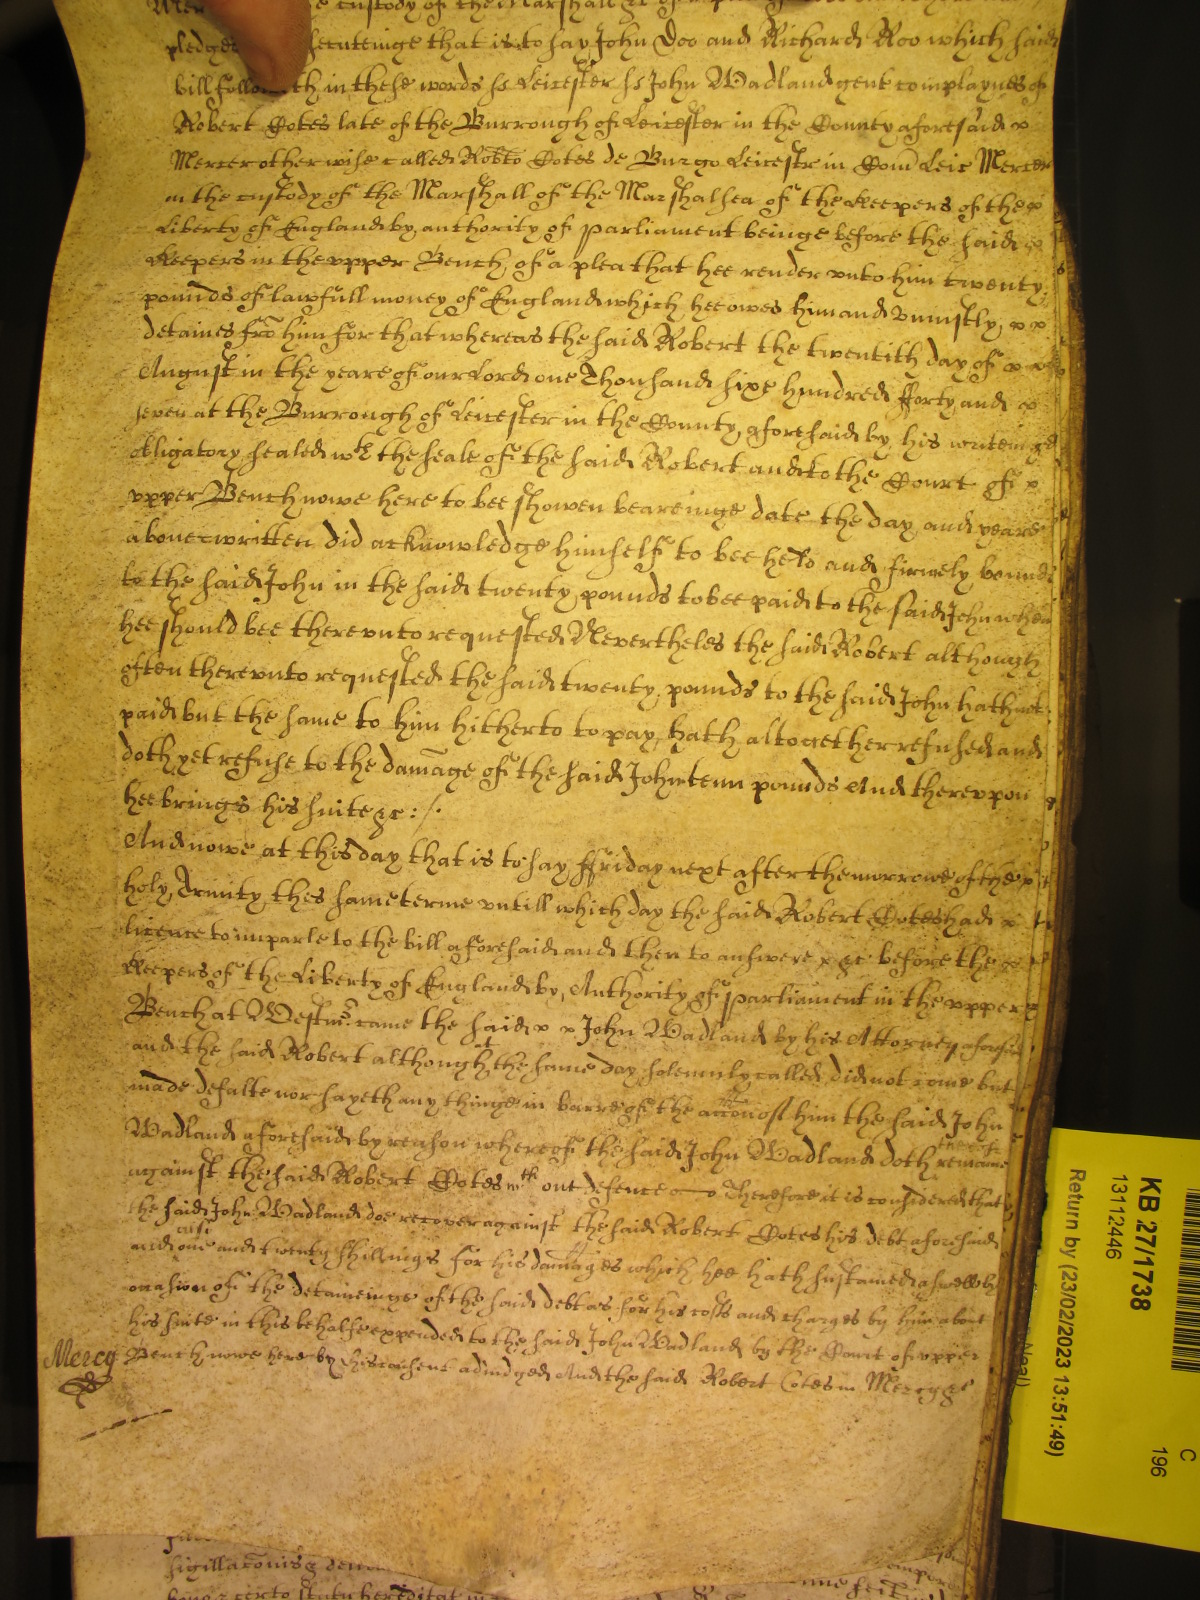 e custody of the Marshall &c of a p
pledges secuteinge that is to say John Doo and Richard Roo which said
bill followeth in these words ss Leicester ss John Wadland gent complaynes of
Robert Cotes late of the Burrough of Leicester in the County aforesaid x
Mercer otherwise called Robto Cotes de Burgo Leicestr in Com Leic Mercer
in the custody of the Marshall of the Marshalsea of the Keepers of the x
Liberty of England by authority of parliament beinge before the said x
Keepers in the vpper Bench of a plea that hee render vnto him twenty
pounds of lawfull money of England which hee owes him and vniustly x x
detaines fro him for that whereas the said Robert the twentith day of x x
August in the yeare of our Lord one Thousand sixe hundred fforty and x
seven at the Burrough of Leicester in the County aforesaid by his writeinge
obligatory sealed wth the seale of the said Robert and to the Court of x
vpper Bench nowe here to bee showen beareinge date the day and yeare
aboue written did acknowledge himself to bee held and firmely bound
to the said John in the said twenty pounds to bee paid to the said John when
hee should bee therevnto requested Nevertheles the said Robert although
often therevnto requested the said twenty pounds to the said John hath not
paid but the same to him hitherto to pay hath altogether refused and
doth yet refuse to the damage of the said John tenn pounds And therevpon
hee brings his suite &c :/.
And nowe at this day that is to say ffriday next after the morrowe of the x
holy Trinity this same terme vntill which day the said Robert Cotes had x
licence to imparle to the bill aforesaid and then to answere x &c before the x
Keepers of the Liberty of England by Authority of parliament in the vpper
Bench at Westmr came the said x x John Wadland by his Attorney aforesaid
and the said Robert although at the same day solemnly called did not come but
made defalte nor sayeth any thinge in barre of the accon of him the said John
Wadland aforesaid by reason whereof the said John Wadland doth remaine
against the said Robert Cotes wth out defence Therefore it is considered that
the said John Wadland doe recover against the said Robert Cotes his debt aforesaid
and one and twenty shillings for his damages which hee hath sustained aswell by
occasion of the detaineinge of the said debt as for his costs and charges by him about
his suite in this behalfe expended to the said John Wadland by the Court of vpper
Mercy Bench nowe here by his consent adiudged And the said Robert Cotes in Mercy &c
sigillacois &
certo statu hereditat
KB 27/1738
13112446
Return by (23/02/2023 13:51:49)
C
196